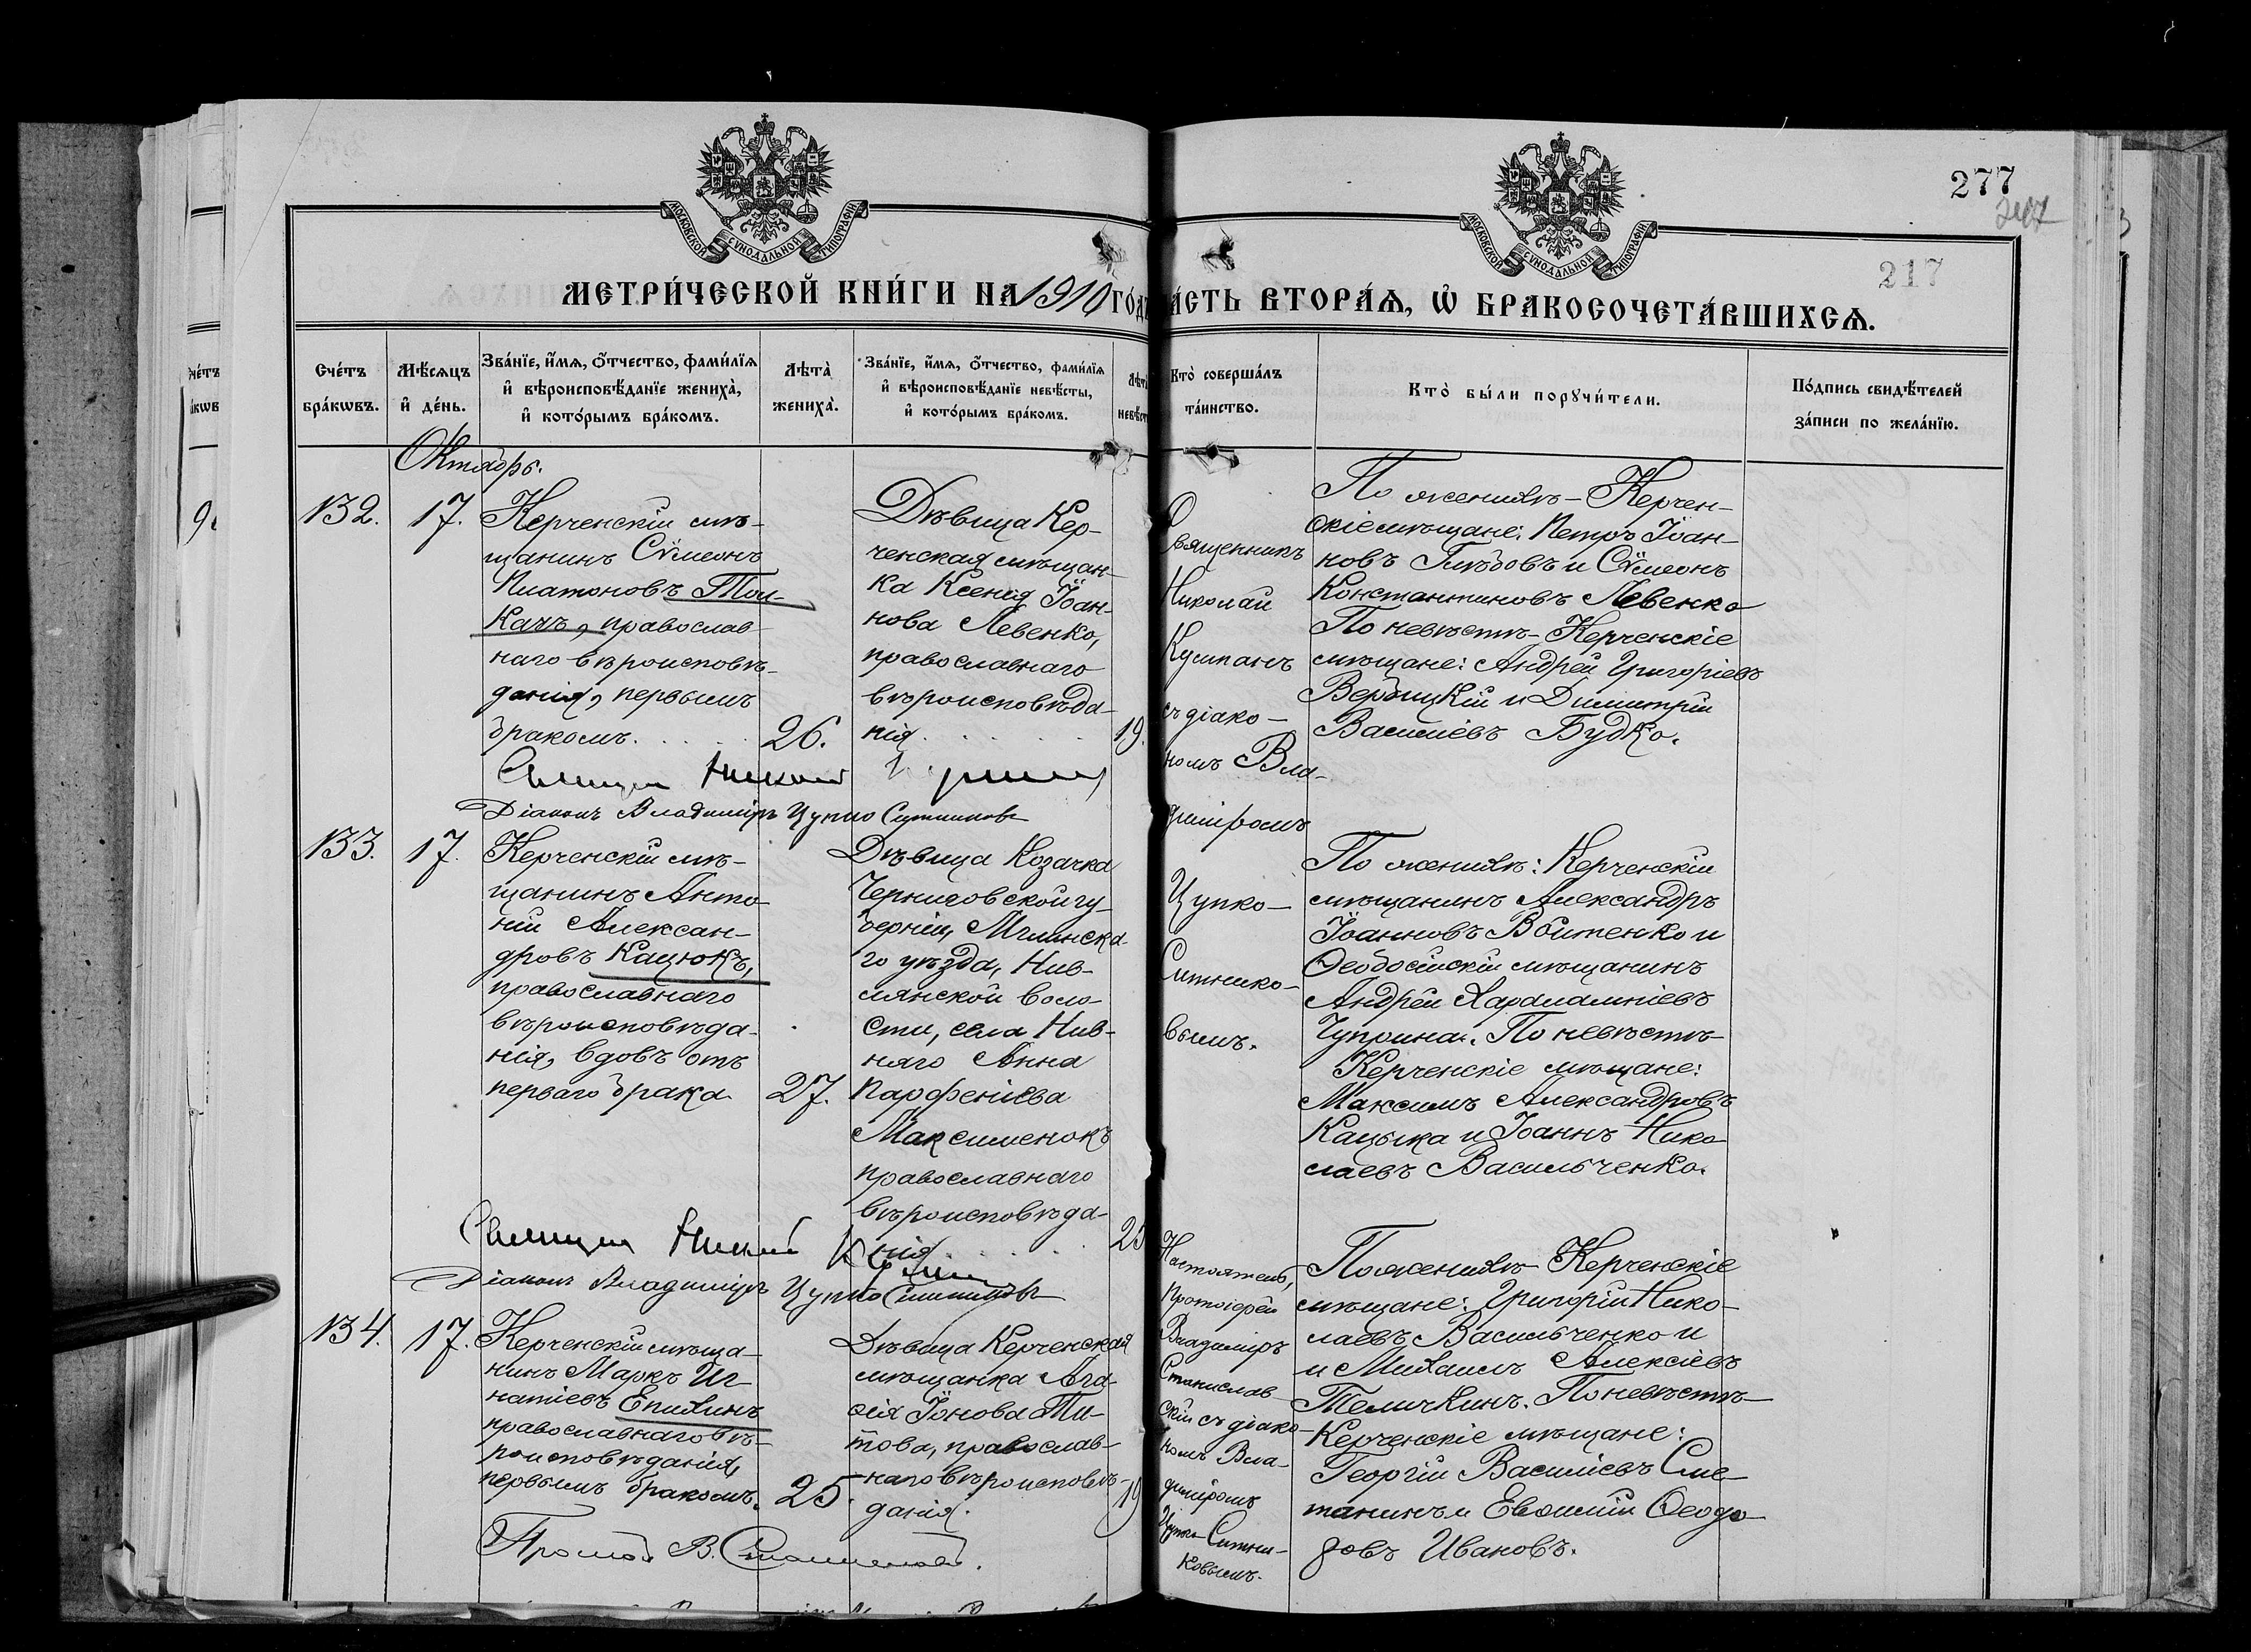 МОСКОВСКОЙ СѴНОДАЛЬНОЙ ТИПОГРАФІИ
МОСКОВСКОЙ СѴНОДАЛЬНОЙ ТИПОГРАФІИ
277
217
МЕТРИ́ЧЕСКОЙ КНИ́ГИ НА 1910 ГО́Д
А́СТЬ ВТОРА́Ѧ, Ѡ҆ БРАКОСОЧЕТА́ВШИХСѦ.
Сче́тъ
бра́кѡвъ.
Мѣ́сяцъ
и҆ де́нь.
Зва́нїе, и҆́мѧ, ѻ҆́тчество, фами́лїѧ
и҆ вѣроисповѣ́данїе жениха̀,
и҆ кото́рымъ бра́комъ.
Лѣта̀
жениха̀.
Зва́нїе, и҆́мѧ, ѻ҆́тчество, фами́лїѧ
и҆ вѣроисповѣ́данїе невѣ́сты,
и҆ кото́рымъ бра́комъ.
Лѣта̀
невѣ́ст
Кто̀ соверша́лъ
та́инство.
Кто̀ бы́ли порꙋчи́тели.
По́дпись свидѣ́телей
за́писи по жела́нїю.
Октябрь.
132.
17.
Керченскій мѣ-
щанинъ Сѵмеонъ
Платоновъ Тол-
качъ, православ-
наго вѣроисповѣ-
данія, первымъ
бракомъ.
26.
Дѣвица Кер-
ченская мѣщан-
ка Ксенія Іоан-
нова Левенко,
православнаго
вѣроисповѣда-
нія
19.
Священникъ
Николай
Кумпанъ
съ діако-
номъ Вла-
диміромъ
Цупко-
Ситнико-
вымъ.
По женихѣ - Керчен-
скіе мѣщане: Петръ Іоан-
новъ Глѣбовъ и Сѵмеонъ
Константиновъ Левенко
По невѣстѣ - Керченскіе
мѣщане: Андрей Григоріевъ
Вербицкій и Димитрій
Василіевъ Будко.
Священ Николай
Діаконъ Владиміръ Цупко Ситниковъ
133.
17.
Керченскій мѣ-
щанинъ Анто-
ній Алексан-
дровъ Кацюкъ,
православнаго
вѣроисповѣда-
нія, вдовъ отъ
перваго брака
27.
Дѣвица Козачка
Черниговской гу-
берніи, Мглинска-
го уѣзда, Нив-
лянской воло-
сти, села Нив-
наго Анна
Парфеніева
Максименокъ
православнаго
вѣроисповѣда-
нія
25
По женихѣ: Керченскій
мѣщанинъ Александръ
Іоанновъ Войтенко и
Ѳеодосійскій мѣщанинъ
Андрей Харалампіевъ
Чуприна. По невѣстѣ
Керченскіе мѣщане:
Максимъ Александровъ
Кацыка и Іоаннъ Нико-
лаевъ Васильченко.
Священ Николай
Діаконъ Владиміръ Цупко Ситниковъ
134.
17.
Керченскій мѣща-
нинъ Маркъ Иг-
натіевъ Епихинъ
православнаго вѣ-
роисповѣданія,
первымъ бракомъ.
25.
Дѣвица Керченская
мѣщанка Ага-
ѳія Іонова Ти-
това, православ-
наго вѣроисповѣ-
данія.
19
Настоятель,
Протоіерей
Владиміръ
Станислав-
скій съ діако-
номъ Вла-
диміромъ
Цупко Ситни-
ковымъ.
По женихѣ Керченскіе
мѣщане: Григорій Нико-
лаевъ Васильченко и
и Михаилъ Алексіевъ
Теличкинъ. По невѣстѣ-
Керченскіе мѣщане:
Георгій Василіевъ Сме-
танинъ и Евѳимій Ѳеодо-
ровъ Ивановъ.